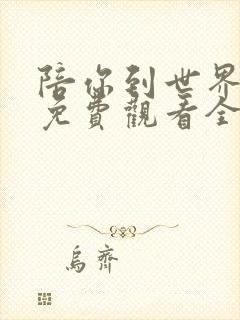 陪你到世界
免費觀看全
烏齊